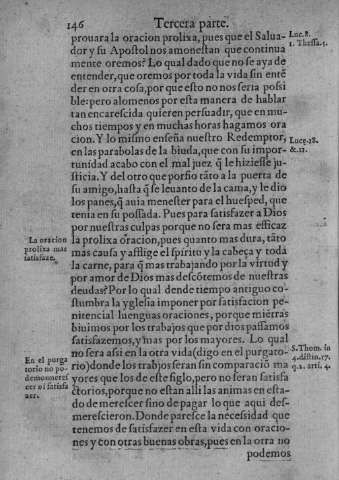 146 Tercera parte.
prouara la oracion prolixa, pues que el Salua-
dor y su Apostol nos amonestan que continua
mente oremos? Lo qual dado que no se aya de
entender, que oremos por toda la vida sin entē
der en otra cosa, por que esto no nos seria possi
ble: pero alomenos por esta manera de hablar
tan encarescida quieren persuadir, que en mu-
chos tiempos y en muchas horas hagamos ora
cion. Y lo mismo enseña nuestro Redemptor,
en las parabolas de la biuda, que con su impor-
tunidad acabo con el mal juez q̄ le hiziesse ju-
sticia. Y del otro que porfio tāto a la puerta de
su amigo, hasta q̄ se leuanto de la cama, y le dio
los panes, q̄ auia menester para el huesped, que
tenia en su possada. Pues para satisfazer a Dios
por nuestras culpas porque no sera mas efficaz
la prolixa oracion, pues quanto mas dura, tāto
mas causa y afflige el spiritu y la cabeça y toda
la carne, para q̄ mas trabajando por la virtud y
por amor de Dios mas descōtemos de nuestras
deudas? Por lo qual dende tiempo antiguo co-
stumbra la yglesia imponer por satisfacion pe-
nitencial luenguas oraciones, porque miētras
biuimos por los trabajos que por dios passamos
satisfazemos, y mas por los mayores. Lo qual
no sera assi en la otra vida (digo en el purgato-
rio) donde los trabjos seran sin comparació ma
yores que los de este siglo, pero no seran satisfa
ctorios, porque no estan alli las animas en esta-
do de merescer sino de pagar lo que aqui des-
merescieron. Donde paresce la necessidad que
tenemos de satisfazer en esta vida con oracio-
nes y con otras buenas obras, pues en la otra no
podemos
Luc. 8.
1. Thessa. 5.
Luce. 18.
&. 11.
La oracion
prolixa mas
satisfaze.
S. Thom. in
4. distin. 17.
q. 2. arti. 4.
En el purga
torio no po-
demos meres
cer ni satisfa
zer.